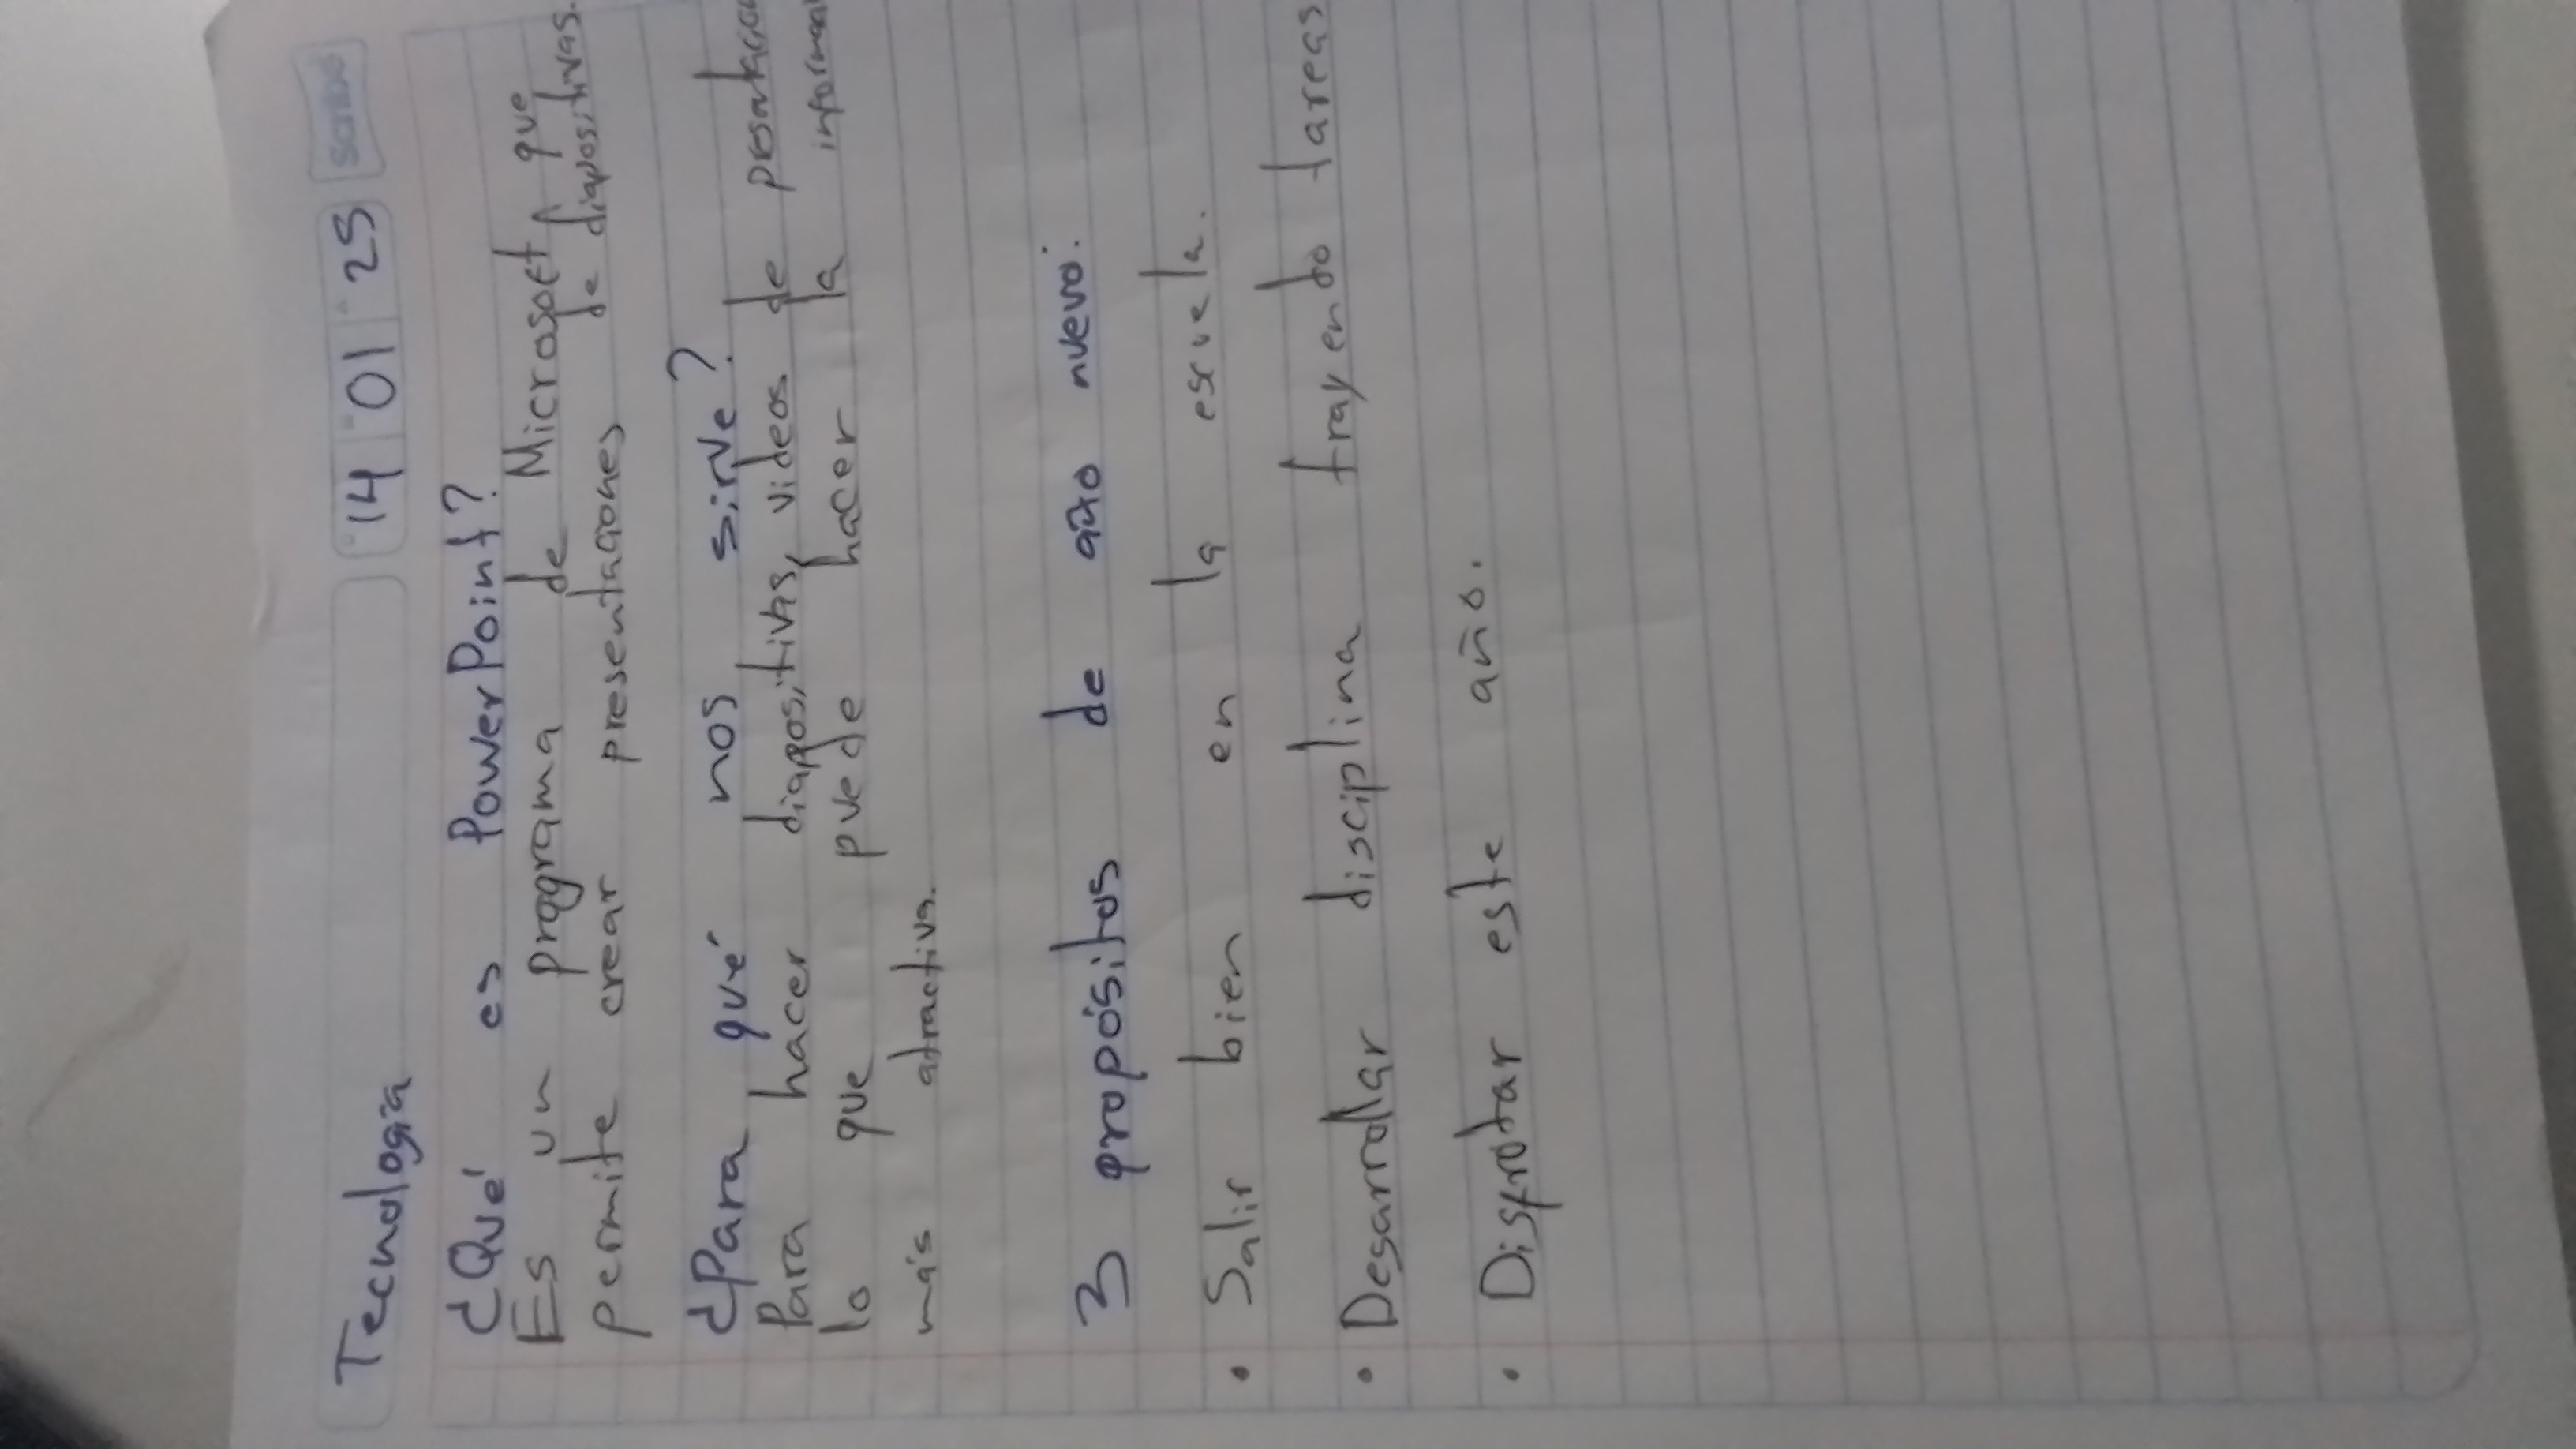 Tecnología 14 01 25 Scribe
¿Qué es PowerPoint?
Es un programa de Microsoft que
permite crear presentaciones de diapositivas.
¿Para qué nos sirve?
Para hacer diapositivas, videos de
lo que puede hacer la
más atractiva.
3 propósitos de año nuevo:
• Salir bien en la escuela.
• Desarrollar disciplina trayendo tareas
• Disfrutar este año.